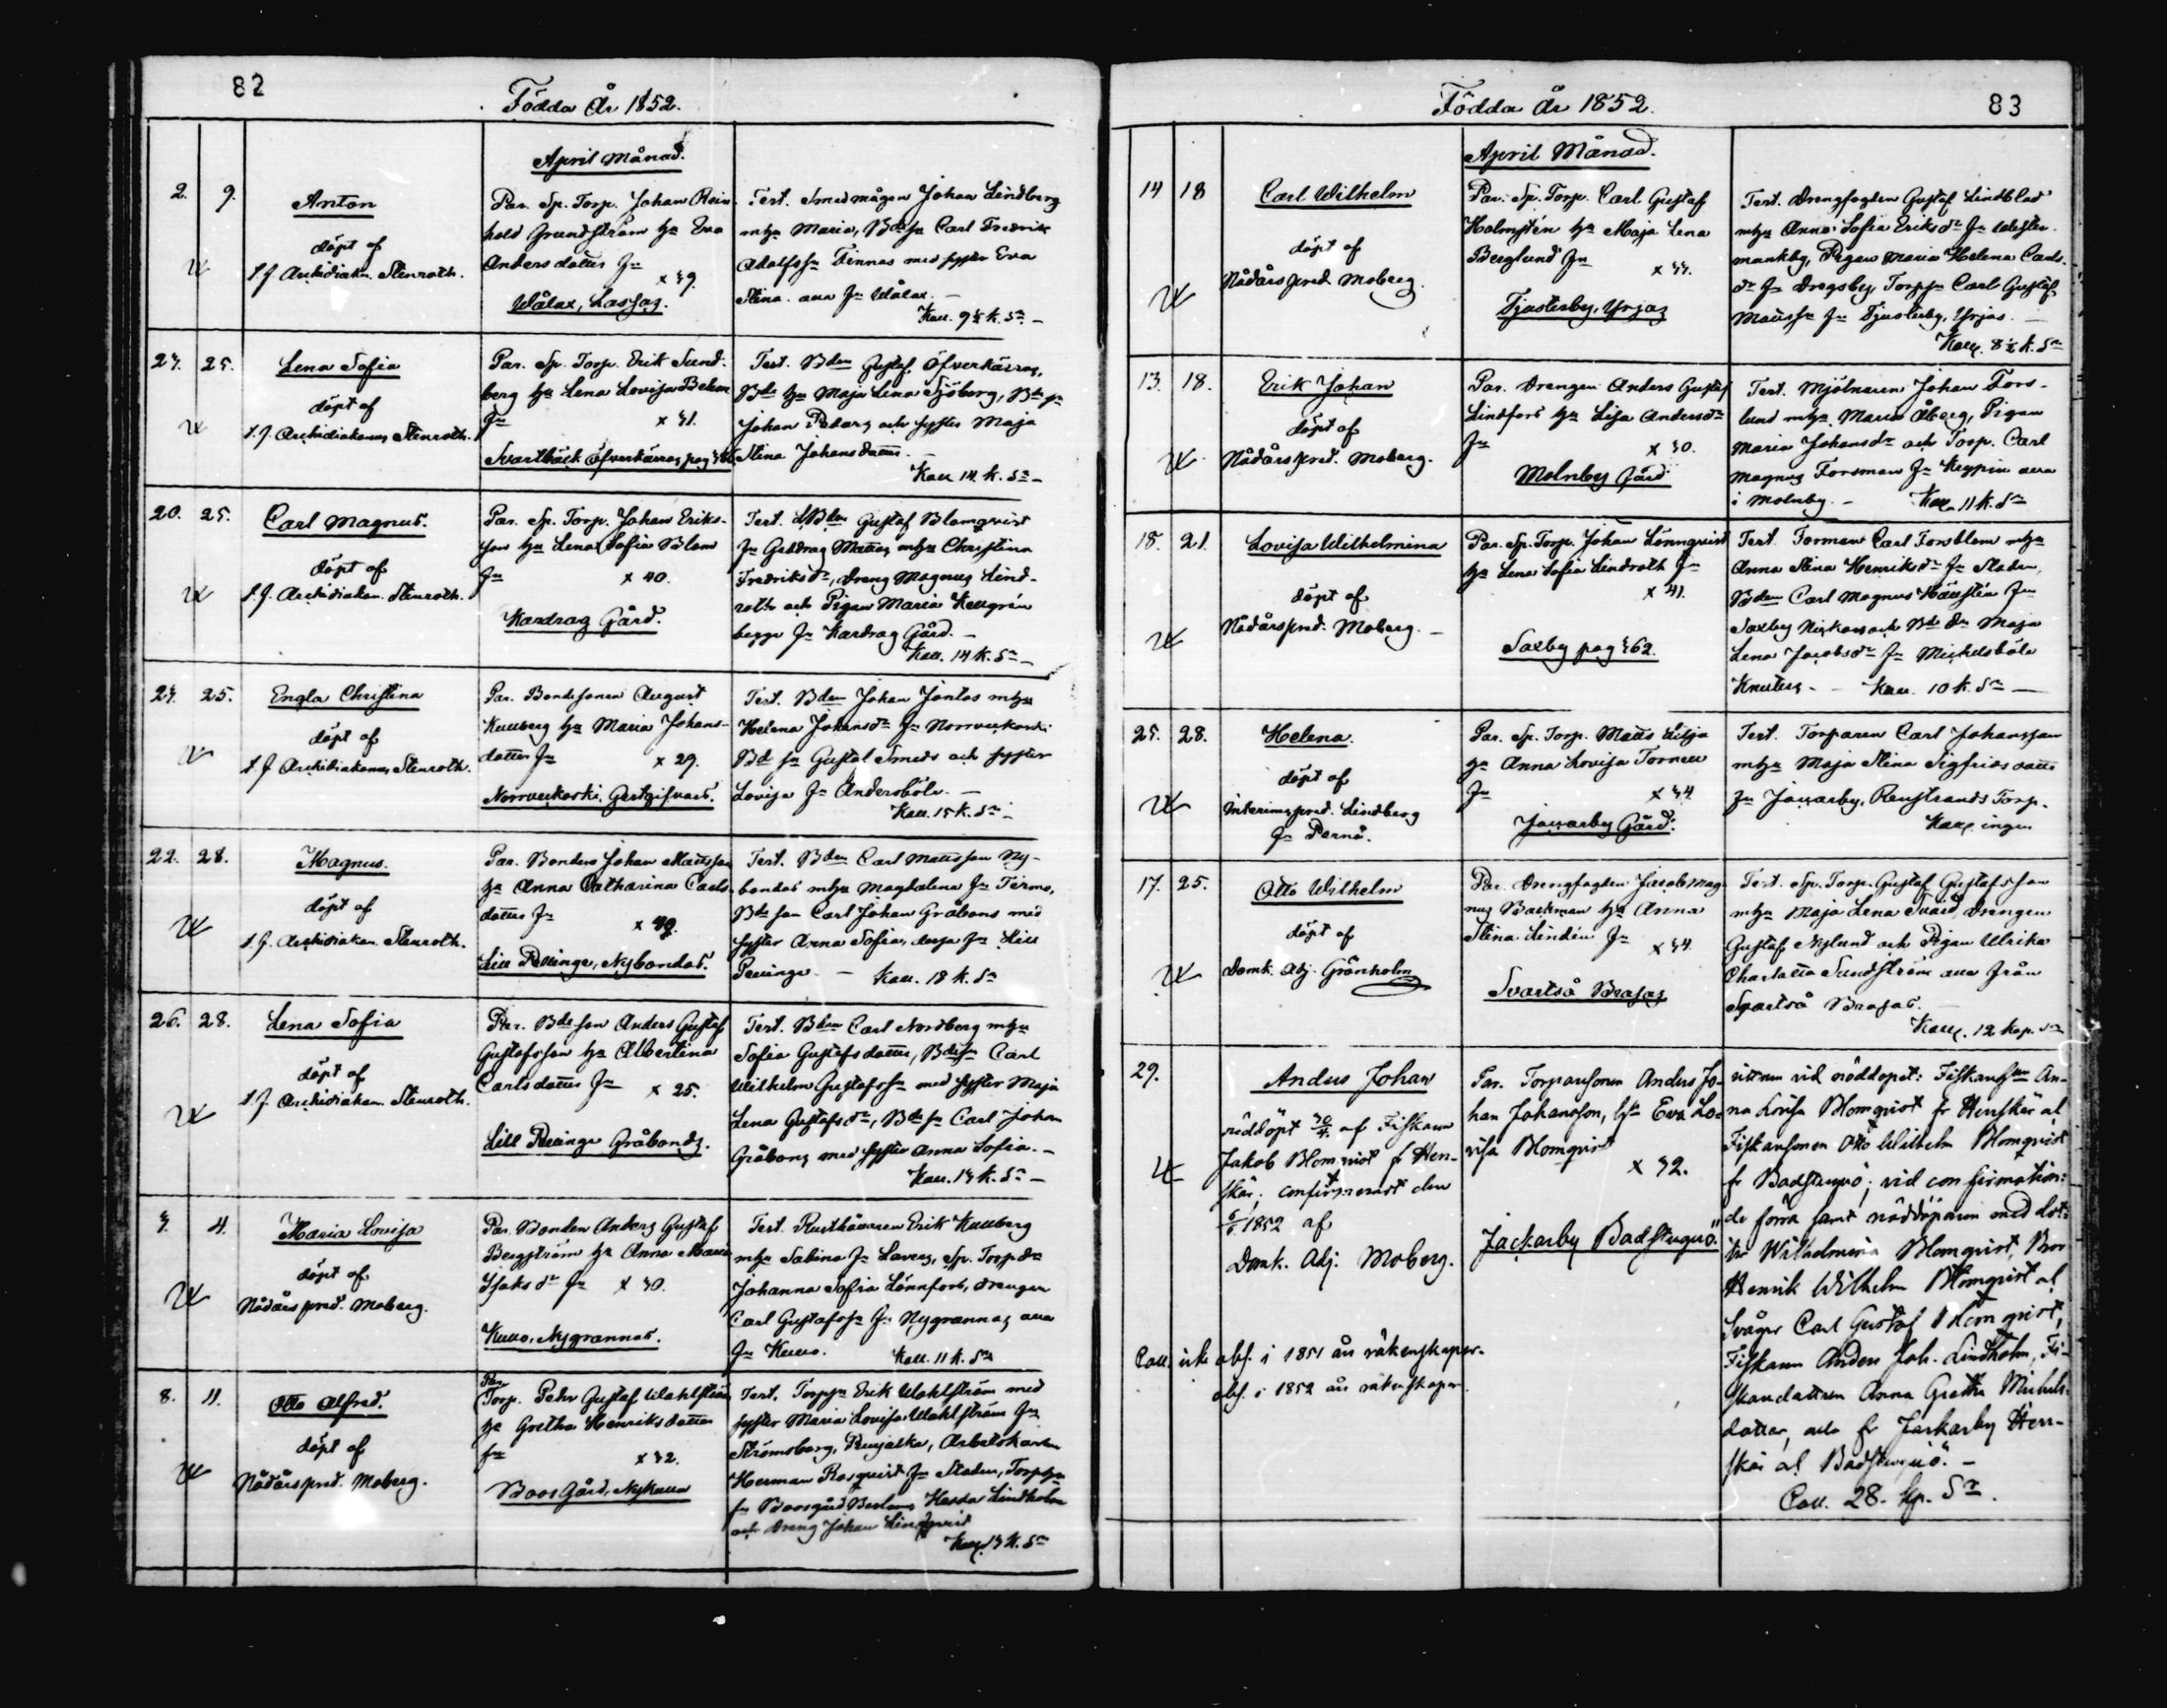 82
Födda År 1852.
April Månad.
2. 9.
Anton
döpt af
Archidiakon. Stenroth.
Par. Sp. Torp. Johan Rein-
hold Grundström ha Eva
Andersdotter fr
x 39.
Wålax, Lassas.
Test. Smedmågen Johan Lindberg
mha Maria, Bdesn Carl Fredrik
Adolfssn Finnas med syster Eva
Stina alla fr Wålax. –
Koll. 9½ k. Sr –
23. 25.
Lena Sofia
döpt af
Archidiakonus Stenroth.
Par. Sp. Torp. Erik Sund-
berg ha Lena Lovisa
fr x 31.
Svartbäck Öfverkärras pag
Test. Bden Gustaf Öfverkärras,
Maja Lena Sjöberg,
Johan och syster Maja
Stina Johansdotter. –
Koll 14 k. Sr –
20. 25.
Carl Magnus.
döpt af
Archidiakon. Stenroth.
Par. Sp. Torp. Johan Eriks-
son ha Lena Sofia Blom
fr x 40.
Kardrag Gård.
Test. Bden Gustaf Blomqvist
fr Gäddrag Mattas mha Christina
Fredriksdr, Dreng Magnus Lind-
roth och Pigan Maria Kullgrén
begge fr Kardrag Gård. –
Koll. 14 k. Sr –
23. 25.
Engla Christina
döpt af
Archidiakonus Stenroth.
Par. Bondesonen August
Kullberg ha Maria Johans-
dotter fr x 29.
Norrveckoski, Gertgifvars.
Test. Bden Johan Jontas mha
Helena Johansdr fr Norrveckoski
Bdesn Gustaf Smeds och syster
Lovisa fr Andersböle. –
Koll. 15 k. Sr –
22. 28.
Magnus.
döpt af
Archidiakon. Stenroth.
Par. Bonden Johan Mattsson
ha Anna Catharina Carls-
dotter fr
Lill Pellinge, Nybondas.
Test. Bden Carl Mattsson Ny-
bondas mha Magdalena fr Tirmo,
Bdeson Carl Johan Gråbons med
syster Anna Sofia, fr Lill
Pellinge. – Koll. 18 k. Sr
26. 28.
Lena Sofia
döpt af
Archidiakon. Stenroth.
Par. Bdeson Anders Gustaf
Gustafsson ha Albertina
Carlsdotter fr x 25.
Lill Pellinge Gråbonds.
Test. Bden Carl Nordberg mha
Sofia Gustafsdotter, Bdesn Carl
Wilhelm Gustafssn med syster Maja
Lena Gustafsdr, Bdesn Carl Johan
Gråbons med syster Anna Sofia. –
Koll. 13 k. Sr –
3. 4.
Maria Lovisa
döpt af
Nådårspred. Moberg.
Par. Bonden Anders Gustaf
Bergström ha Anna Maria
Isaksdr fr x 30.
Kullo, Nygrannas.
Test. Rusthållaren Erik Kullberg
mha Sabina fr Laverg, Sp. Torpdr
Johanna Sofia Lönnfors, Drengen
Carl Gustafssn fr Nygrannas alla
fr Kullo. Koll. 11 k. Sr
8. 11.
Otto Alfred.
döpt af
Nådårspred. Moberg.
Par
Torp. Pehr Gustaf Wahlström
ha Gretha Henriksdotter
fr x 32.
Boos Gård, Nykulla
Test. Torpsn Erik Wahlström med
syster Maria Lovisa Wahlström fr
Strömsberg, Arbetskarlen
Herman Rosqvist fr Staden,
fr Boosgård Hedda Lindholm
och Dreng Johan Lindqvist
Koll 13 k. Sr
83
Födda År 1852.
April Månad.
14 18
Carl Wilhelm
döpt af
Nådårspred Moberg.
Par. Sp. Torp. Carl Gustaf
Holmstén ha Maja Lena
Berglund fr
x 33.
Tjusterby, Yrjas
Test. Drengfogden Gustaf Lindblad
mha Anna Sofia Eriksdr fr Wester-
mankby, Pigan Maria Helena Carls-
dr fr Drogsby, Torpsn Carl Gustaf
Mattssn fr Tjusterby, Yrjas. –
Koll. 8½ k. Sr
13. 18.
Erik Johan
döpt af
Nådårspred. Moberg.
Par. Drengen Anders Gustaf
Lindfors ha Lisa Andersdr
fr x 30.
Molnby Gård
Test. Mjölnaren Johan Fors-
lund mha Maria Åberg, Pigan
Maria Johansdr och Torp. Carl
Magnus Forsman fr alla
i Molnby. – Koll 11 k. Sr
18. 21.
Lovisa Wilhelmina
döpt af
Nådårspred. Moberg. –
Par. Sp. Torp. Johan Lönnqvist
ha Lena Sofia Lindroth fr
x 41.
Saxby pag 362.
Test. Forman Carl Forsblom mha
Anna Stina Henriksdr fr Staden,
Bden Carl Magnus fr
Saxby och Bdedr Maja
Lena Jacobsdr fr Mickelsböle
Knuters. – Koll. 10 k. Sr –
25. 28.
Helena.
döpt af
Interimspred. Lindberg
fr Pernå.
Par. Sp. Torp. Matts Lilja
ha Anna Lovisa Tornell
fr x 34
Jackarby Gård.
Test. Torparen Carl Johansson
mha Maja Stina Sigfridsdotter
fr Jackarby, Renstrands Torp.
Koll. ingen
17. 25.
Otto Wilhelm
döpt af
Domk. Adj. Grönholm
Par. Drengfogden Jacob Mag-
nus Backman ha Anna
Stina Lindén fr x 34
Svartså Brasas
Test. Sp. Torp. Gustaf Gustafsson
mha Maja Lena Svärd, Drengen
Gustaf Nylund och Pigan Ulrika
Charlotta Sundström alla från
Svartså Brasas. –
Koll. 12 kop. Sr
29.
Anders Johan
nöddöpt 30/4 af Fiskaren
Jakob Blomqvist fr Hem-
skär; confirmerad den
6/6 1852 af
Domk. Adj. Moberg.
Par. Torparsonen Anders Jo-
han Johansson, ha Eva Lo-
visa Blomqvist
x 32.
Jackarby Badstuguö.
vittnen vid nöddopet: An-
na Lovisa Blomqvist fr Hemskär o.
Fiskarsonen Otto Wilhelm Blomqvist
fr Badstuguö; vid confirmation:
de förra samt nöddöparen med dot-
ter Wilhelmina Blomqvist, Bror
Henrik Wilhelm Blomqvist o.
Svåger Carl Gustaf Blomqvist,
Fiskaren Anders Joh. Lindholm, Fi-
skardottren Anna Gretha Michels-
dotter, alla fr Jackarby Hem-
skär o. Badstuguö. –
Coll. 28. kp. Sr.
Coll. icke obs. i 1851 års räkenskaper.
obs. i 1852 års räkenskaper.